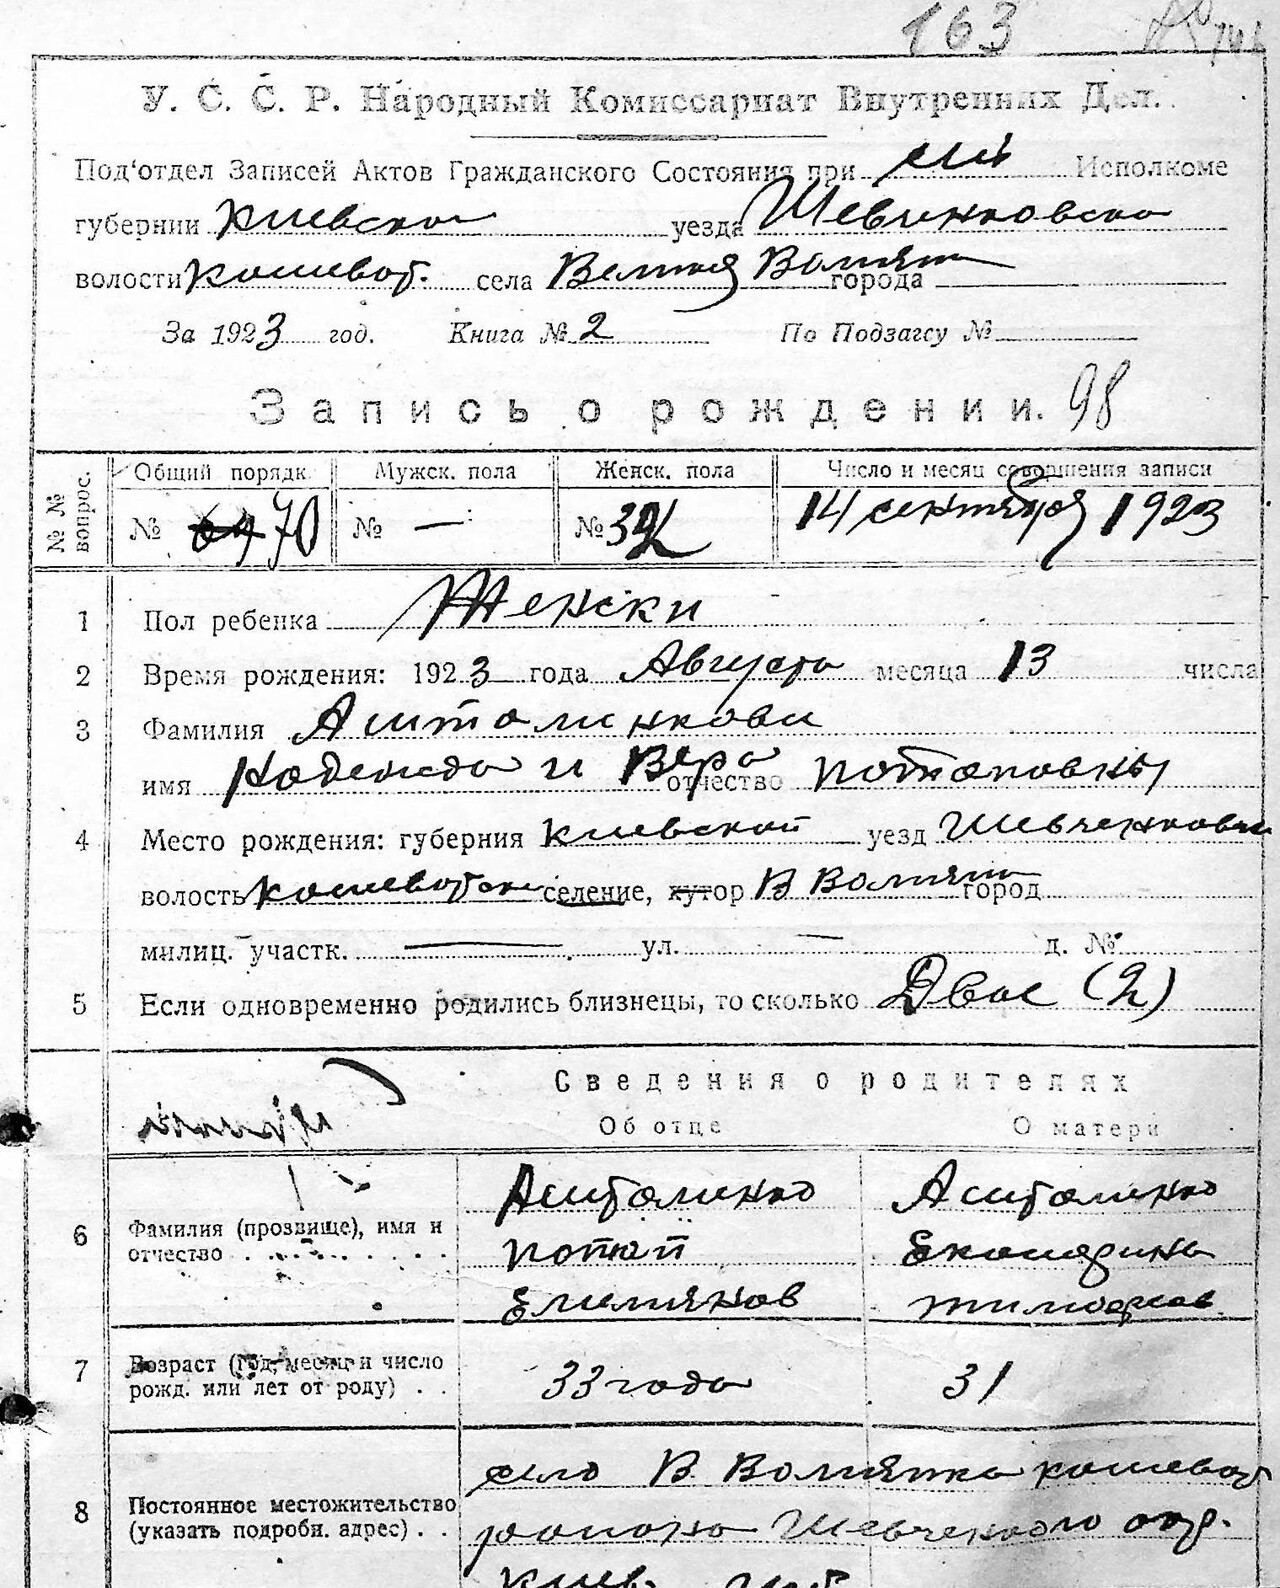 163
У. С. С. Р. Народный Комиссариат Внутренних Дел.
Под'отдел Записей Актов Гражданского Состояния при Исполкоме
губернии Киевской уезда Шевченковско
волости Кошеват. села города
За 1923 год. Книга № 2 По Подзагсу №
Запись о рождении. 98
№ № вопрос. Общий порядк. Мужск. пола Женск. пола Число и месяц совершения записи
№ 70 № — № 14 сентября 1923
1 Пол ребенка Женски
2 Время рождения: 1923 года Августа месяца 13 числа
3 Фамилия
имя Надежда и Вера отчество Потаповны
4 Место рождения: губерния Киевской уезд Шевченковски
волость селение, хутор город
милиц. участк. — ул. — д. №
5 Если одновременно родились близнецы, то сколько Двое (2)
Сведения о родителях
Об отце О матери
6 Фамилия (прозвище), имя и
отчество
Потап
Екатерина
7 Возраст (год, месяц и число
рожд. или лет от роду) . . 33 года 31
8 Постоянное местожительство
(указать подробн. адрес) . .
село В
района Шевченкого окр.
Киев. губ